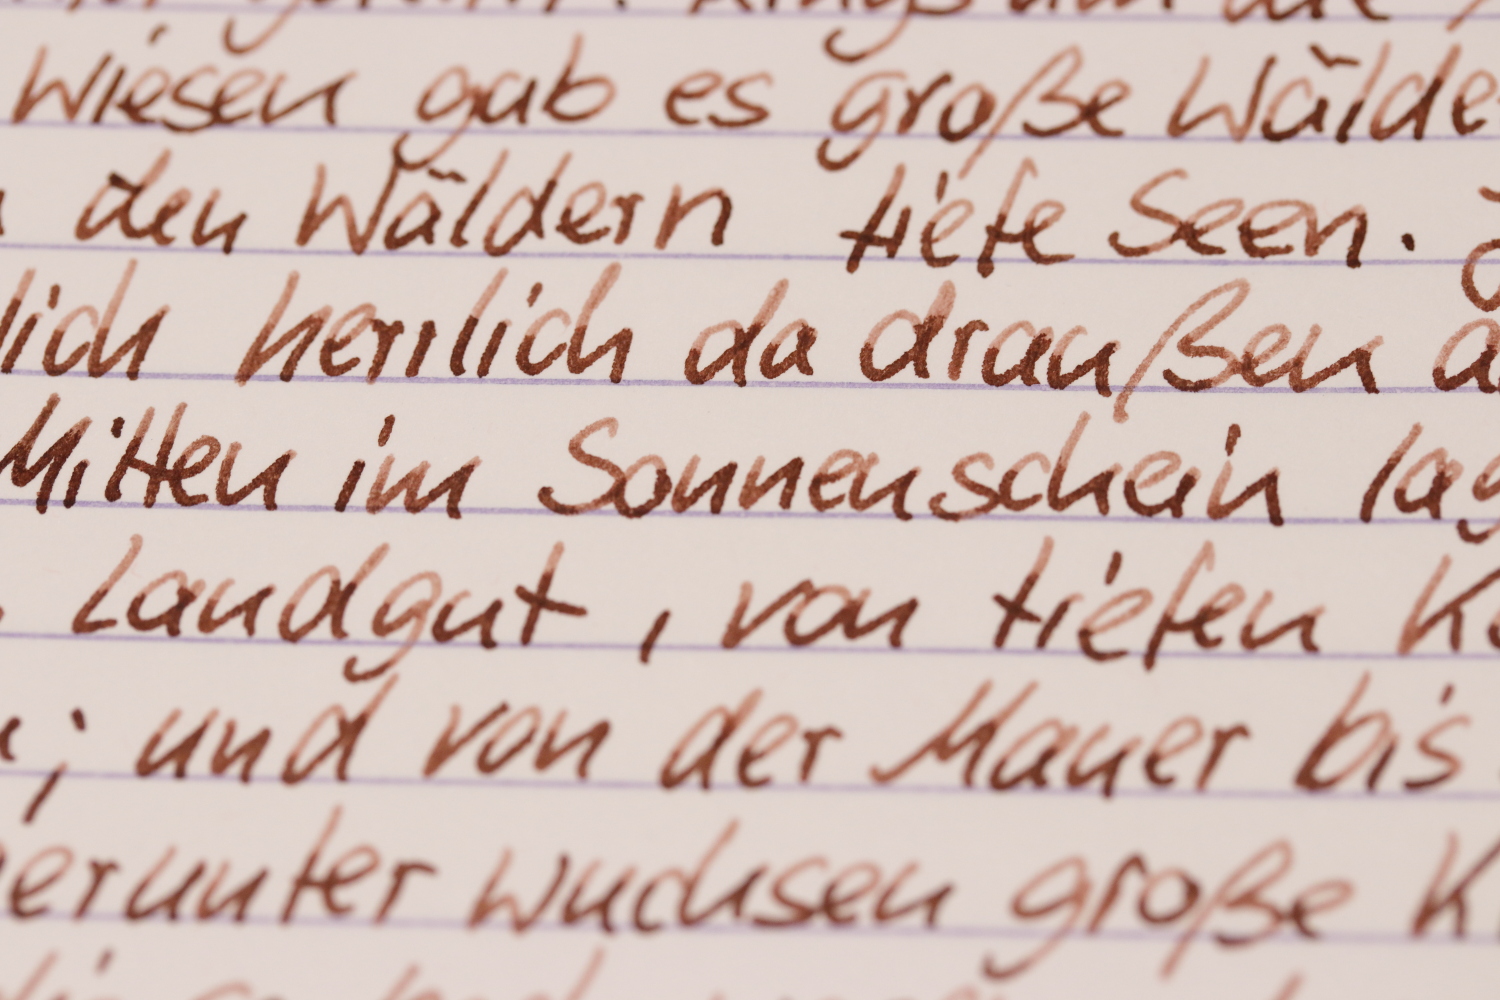 Rings um die
Wiesen gab es große Wälde
den Wäldern tiefe Seen.
lich herrlich da draußen
Mitten im Sonnenschein lag
Landgut, von tiefen K
; und von der Mauer bis
erunter wuchsen große K